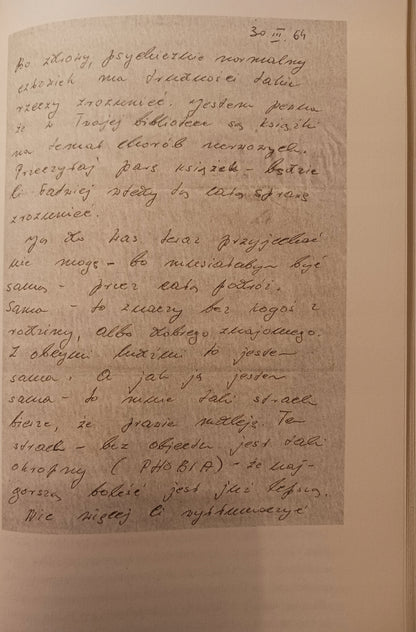 30. III. 64
Bo zdrowy, psychicznie normalny
człowiek ma trudności takie
rzeczy zrozumieć. Jestem pewna
że w Twojej bibliotece są książki
na temat chorób nerwowych.
Przeczytaj parę książek – będzie
Ci łatwiej wtedy tą całą sprawę
zrozumieć.
Ja do Was teraz przyjechać
nie mogę – bo musiałabym być
sama – przez całą podróż.
Sama – to znaczy bez kogoś z
rodziny, albo dobrego znajomego.
Z obcymi ludźmi to jestem
sama. A jak ja jestem
sama – to mnie taki strach
bierze, że prawie mdleję. Ten
strach – bez objectu jest taki
okropny (PHOBIA) – że naj-
gorsza boleść jest już lepsza.
Nic więcej Ci wytłumaczyć